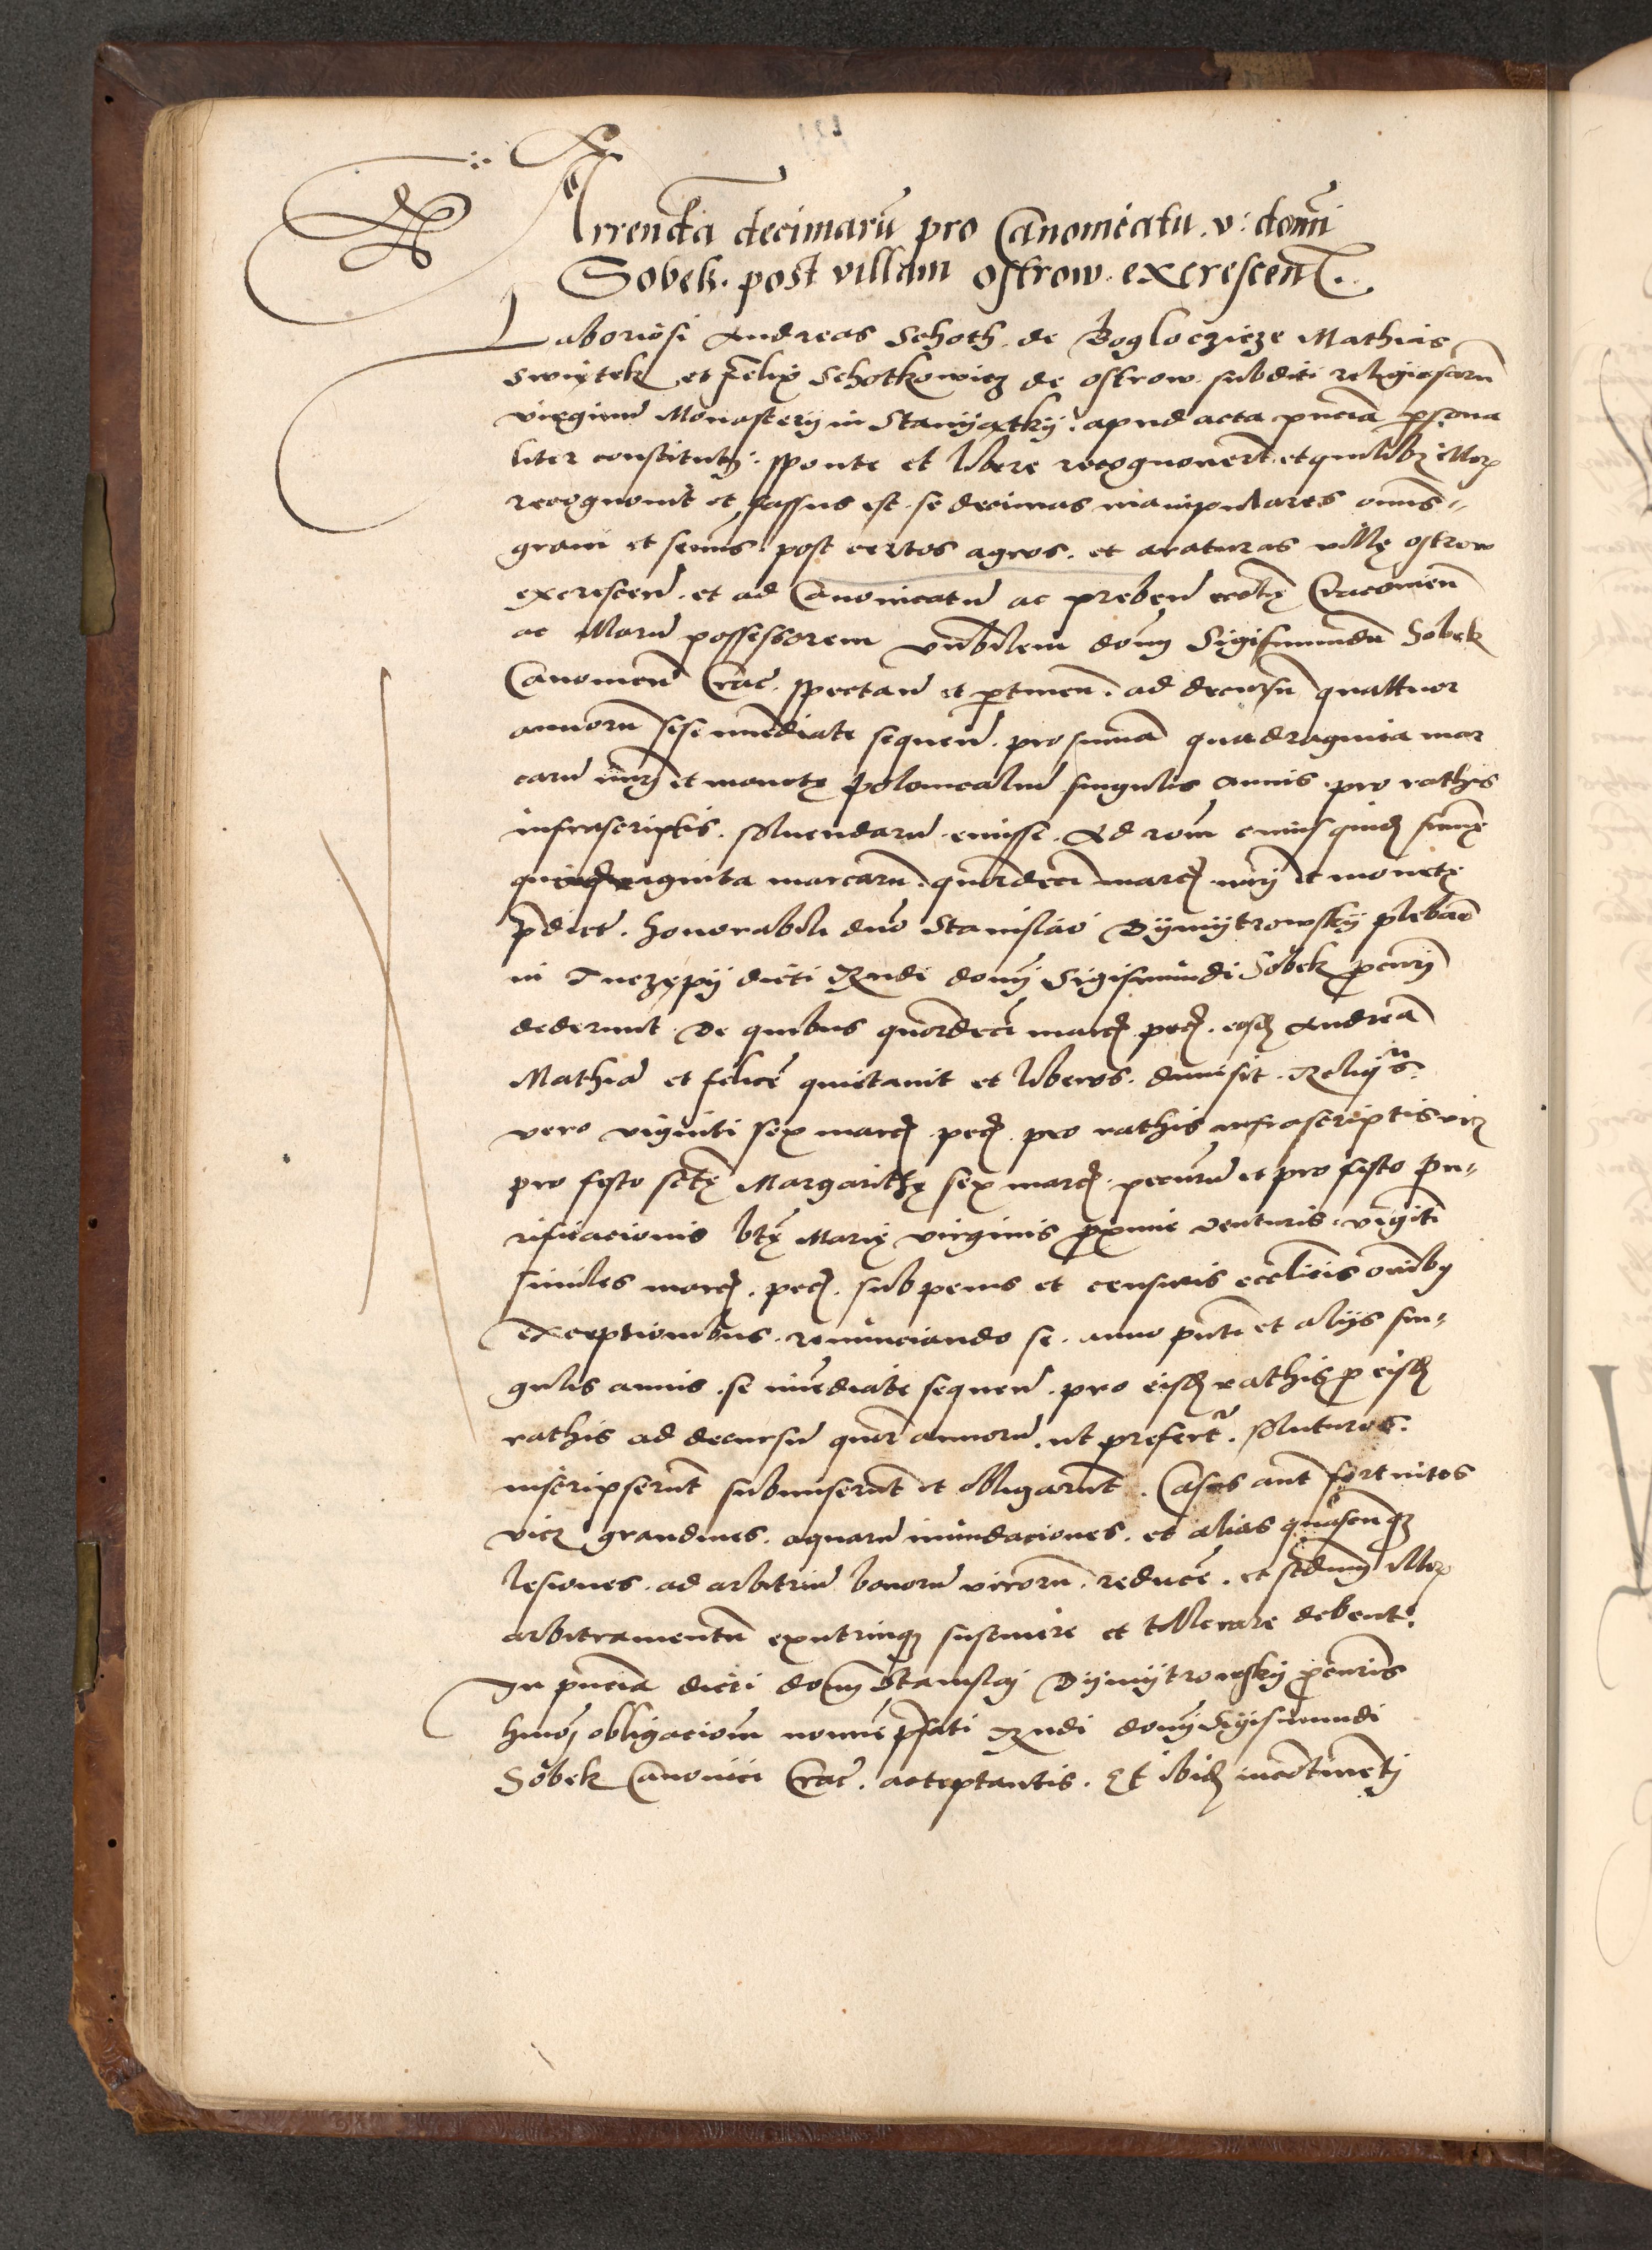 Arrenda decimarū pro Canonicatu v: domī
Sobek. post villam ostrow. excrescen.
Laboriosi Andreas Schoth. de Bogloczicze Mathias
Swiętek et Felix Schotkowicz de ostrow. subditi religiosarū
virginū Monasterij in Stanyątky: apud acta pn̄cia p̱sona
liter constituti: sponte et libere recognouerūt. et quilibꝫ illoꝝ
recognouit et fassus est. se decimas manipulares omīs
grani et semīs. post certos agros. et araturas villę ostrow
excrescen̄. et ad Canonicatū ac preben̄ eccłię Cracouien̄
ac illarū possessorem vn̄bilem dōm Sigismundū Sobek
Canonicū Crac̄. spectan̄ et p̱tinen̄. ad decursū quattuor
annorū sese īmediate sequen̄. pro summa quadraginta mar
carū nūj et monetę polonicaliū singulis annis. pro rathis
infrascriptis. soluendarū emisse. Ad rōm cuiusquidē summę
quadraginta marcarū. quordecī marc̄ nūj et monetę
p̄dict̄. honorabili dn̄o Stanislao Dymytrowsky plebāo
in Tuczępy dicti Rn̄di domī Sigismundi Sobek p̱curī
dederunt. De quibus quordecī marc̄ pec̄. eosd̄ Andreā
Mathiā et felicē quietauit et liberos. dimisit. Reliquas
vero viginti sex marc̄ pec̄. pro rathis infrascriptis vicꝫ
pro festo sctę Margarithę sex marc̄. pecuniarū et pro festo Pu
rificacionis btę Marię virginis ꝓxime venturis. vigintī
similes marc̄. pec̄. sub penis et censuris eccłicis omībꝰ
exceptionibus. renunciando se. anno pn̄ti et alijs sin
gulis annis. se īmediate sequen̄. pro eisd̄ rathis p̱ eisd̄
rathis ad decursū quor̄ annorū. ut prefert̄. soluturos.
inscripserūt submiserūt et obligarūt. Casus aūt fortuitos
vicꝫ grandines. aquarū inundaciones. et alias quascunqꝫ
lesiones. ad arbitriū bonorū virorū. reducē. et scdūm illoꝝ
arbitramentū exutrinqꝫ sustinere et tollerare debent.
In pn̄cia dicti domī Stanislaj Dymytrowsky p̱curīs
hmōj obligaciōm nomīe p̄fati Rn̄di domī Sigismundi
Sobek Canonici Crac̄. acceptantis. Et ibid̄ incōtinētj